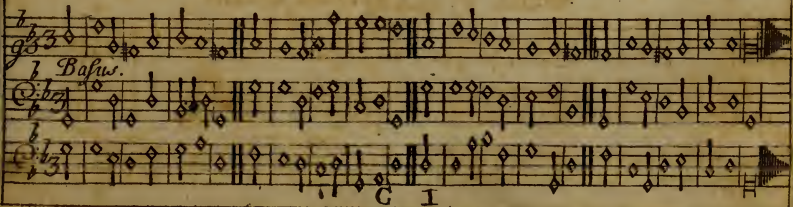 Baſus.
G I